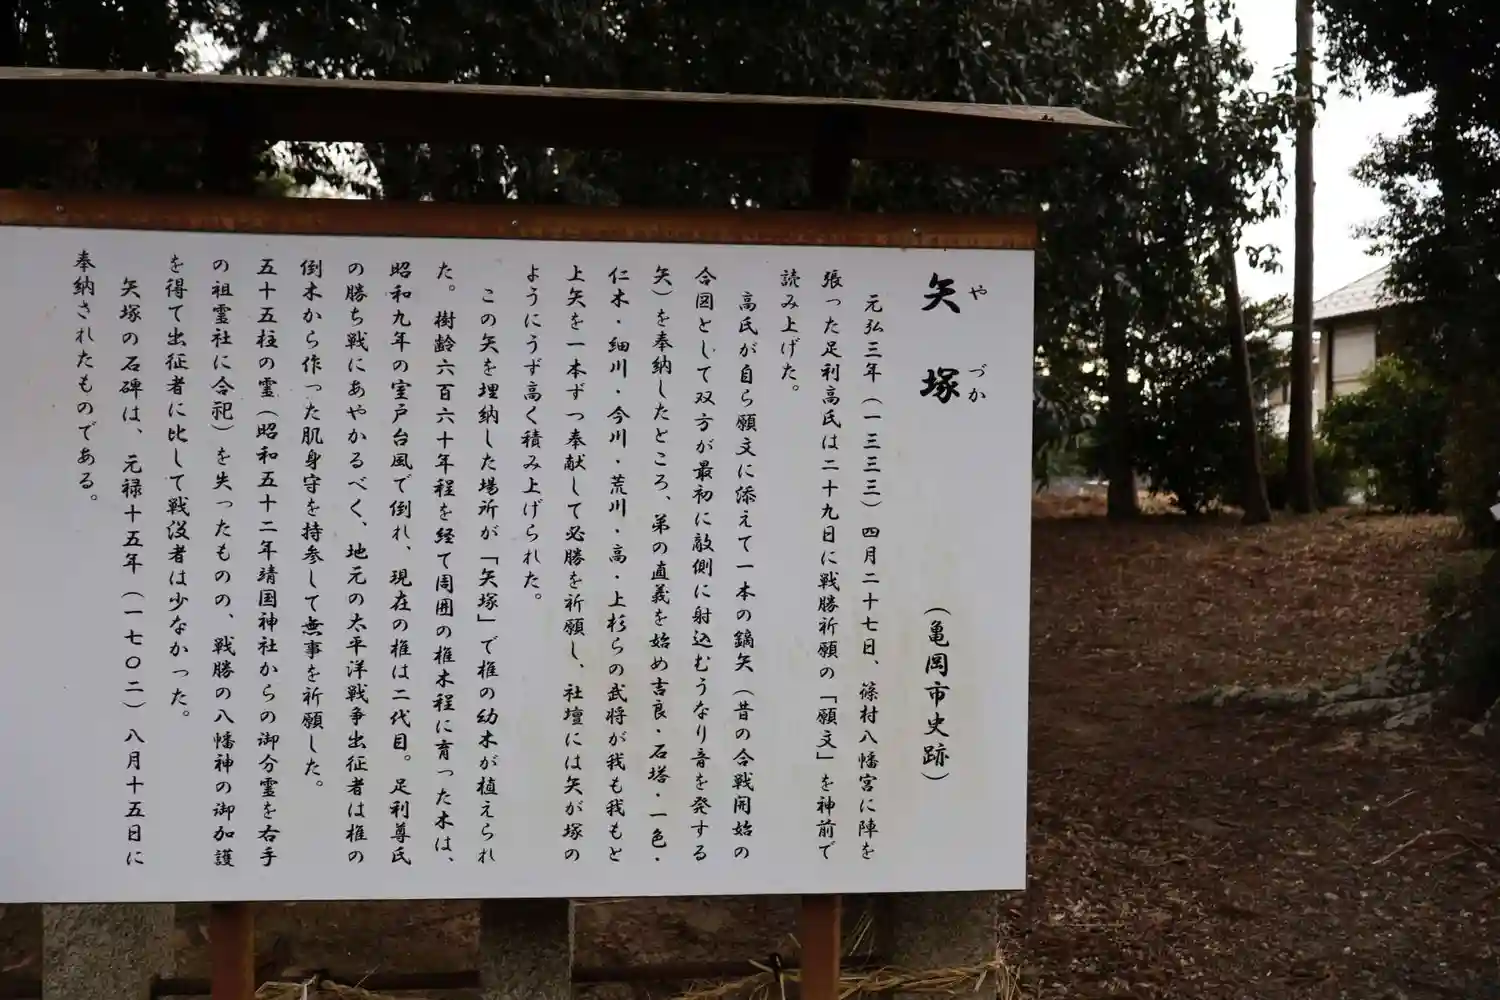 矢塚
やづか
(亀岡市史跡)
元弘三年(一三三三)四月二十七日、篠村八幡宮に陣を
張った足利高氏は二十九日に戦勝祈願の「願文」を神前で
読み上げた。
高氏が自ら願文に添えて一本の鏑矢(昔の合戦開始の
合図として双方が最初に敵側に射込むうなり音を発する
矢)を奉納したところ、弟の直義を始め吉良・石塔・一色・
仁木・細川・今川・荒川・高・上杉らの武将が我も我もと
上矢を一本ずつ奉献して必勝を祈願し、社壇には矢が塚の
ようにうず高く積み上げられた。
この矢を埋納した場所が「矢塚」で椎の幼木が植えられ
た。樹齢六百六十年程を経て周囲の椎木程に育った木は、
昭和九年の室戸台風で倒れ、現在の椎は二代目。足利尊氏
の勝ち戦にあやかるべく、地元の太平洋戦争出征者は椎の
倒木から作った肌身守を持参して無事を祈願した。
五十五柱の霊(昭和五十二年靖国神社からの御分霊を右手
の祖霊社に合祀)を失ったものの、戦勝の八幡神の御加護
を得て出征者に比して戦没者は少なかった。
矢塚の石碑は、元禄十五年(一七〇二)八月十五日に
奉納されたものである。